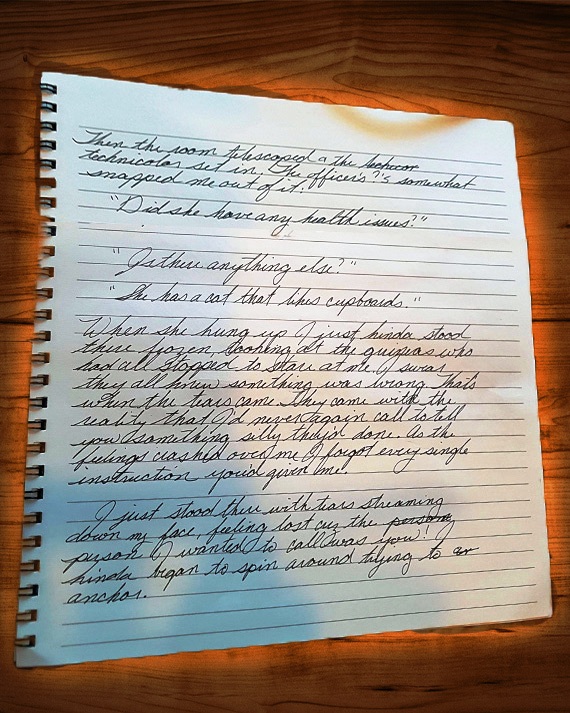 Then the room telescoped a the techicor
technicolor set in. The officer's ?'s somewhat
snapped me out of it.
"Did she have any health issues?"
"Is there anything else?"
"She has a cat that likes cupboards."
When she hung up I just kinda stood
there frozen, looking at the guineas who
had all stopped to stare at me. I swear
they all knew something was wrong. Thats
when the tears came. They came with the
reality that I'd never again call to tell
you something silly they'd done. As the
feelings crashed over me I forgot every single
instruction you'd given me.
I just stood there with tears streaming
down my face, feeling lost cuz the persong
person I wanted to call was you! I
kinda began to spin around trying to
anchor.